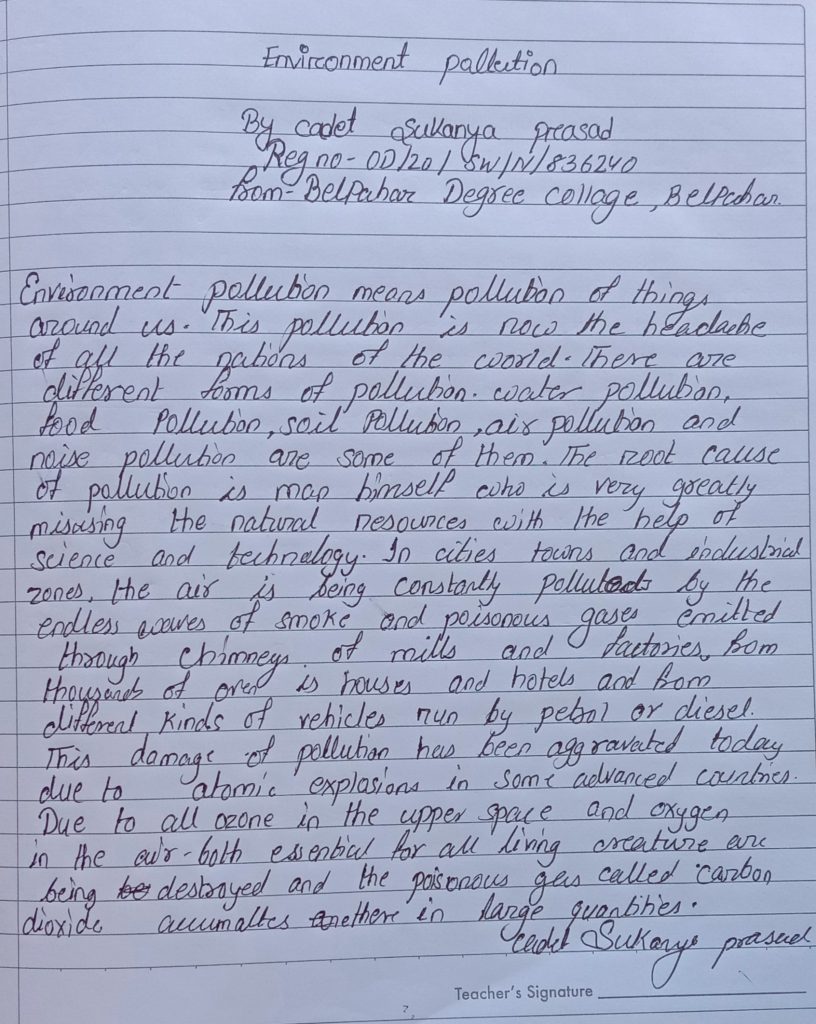 Environment pollution
By cadet Sukanya preasad
Reg no- OD/20/SW/N/836240
from- Belpahar Degree collage, Belpahar.
Environment pollution means pollution of things
around us. This pollution is now the headache
of all the nations of the world. There are
different forms of pollution. water pollution,
food Pollution, soil Pollution, air pollution and
noise pollution are some of them. The root cause
of pollution is man himself who is very greatly
misusing the natural resources with the help of
science and technology. In cities towns and industrial
zones, the air is being constantly polluted by the
endless waves of smoke and poisonous gases emitted
through chimneys of mills and factories, from
thousands of oven is houses and hotels and from
different kinds of vehicles run by petrol or diesel.
This damage of pollution has been aggravated today
due to atomic explosions in some advanced countries.
Due to all ozone in the upper space and oxygen
in the air-both essential for all living creature are
being destroyed and the poisonous gas called carbon
dioxide accumaltes there in large quantities.
cadet Sukanya prasad
Teacher's Signature